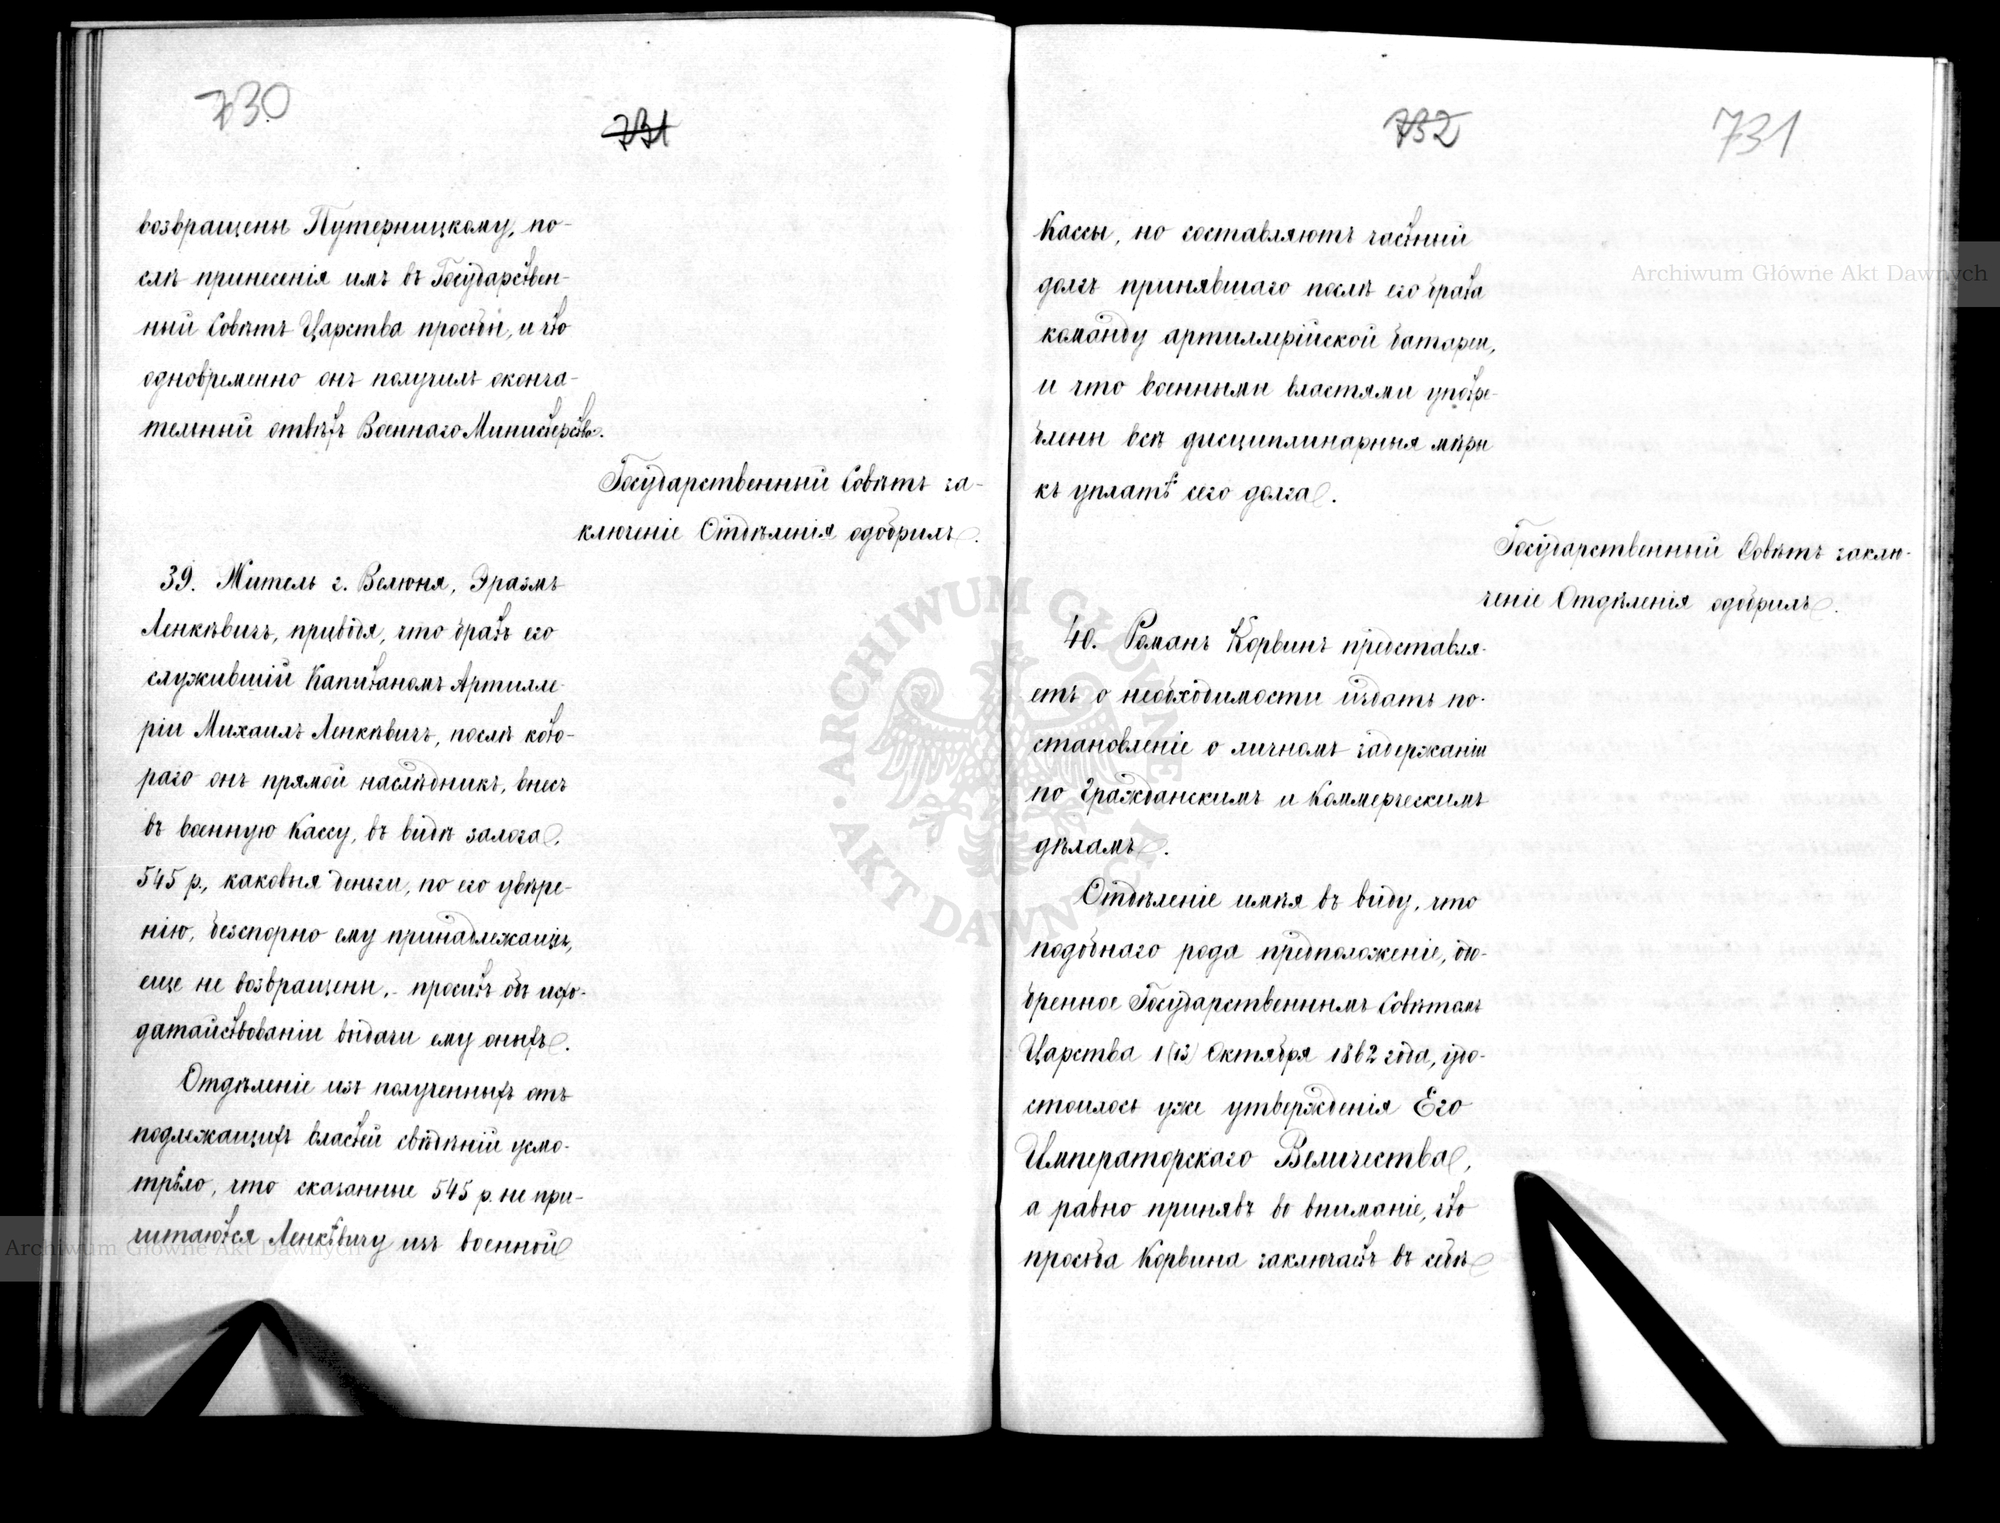 730
731
возвращены Путерницкому, по-
слѣ принесенія имъ въ Государствен-
ный Совѣтъ Царства просьбы, и что
одновременно онъ получилъ оконча-
тельный отвѣтъ Военнаго Министерства.
Государственный Совѣтъ за-
ключеніе Отдѣленія одобрилъ.
39. Житель г. Велюня, Эразмъ
Ленкѣвичъ, приводя, что братъ его
служившій Капитаномъ Артилле-
ріи Михаилъ Ленкѣвичъ, послѣ кото-
раго онъ прямой наслѣдникъ, внесъ
въ военную Кассу, въ видѣ залога,
545 р., каковыя деньги, по его увѣре-
нію, безспорно ему принадлежащія,
еще не возвращены, - проситъ объ исхо-
датайствованіи выдачи ему оныхъ.
Отдѣленіе изъ полученныхъ отъ
подлежащихъ властей свѣдѣній усмо-
трѣло, что сказанные 545 р. не при-
читаются Ленкѣвичу изъ военной
732
731
Кассы, но составляютъ частный
долгъ принявшаго послѣ его брата
команду артиллерійской батареи,
и что военными властями употре-
блены всѣ дисциплинарныя мѣры
къ уплатѣ сего долга.
Государственный Совѣтъ заклю-
ченіе Отдѣленія одобрилъ.
40. Романъ Корвинъ представля-
етъ о необходимости издать по-
становленіе о личномъ задержаніи
по Гражданскимъ и Коммерческимъ
дѣламъ.
Отдѣленіе имѣя въ виду, что
подобнаго рода предположеніе, одо-
бренное Государственнымъ Совѣтомъ
Царства 1 (13) Октября 1862 года, удо-
стоилось уже утвержденія Его
Императорскаго Величества,
а равно принявъ во вниманіе, что
просьба Корвина заключаетъ въ себѣ
Archiwum Główne Akt Dawnych
Archiwum Główne Akt Dawnych
ARCHIWUM GŁÓWNE
AKT DAWNYCH